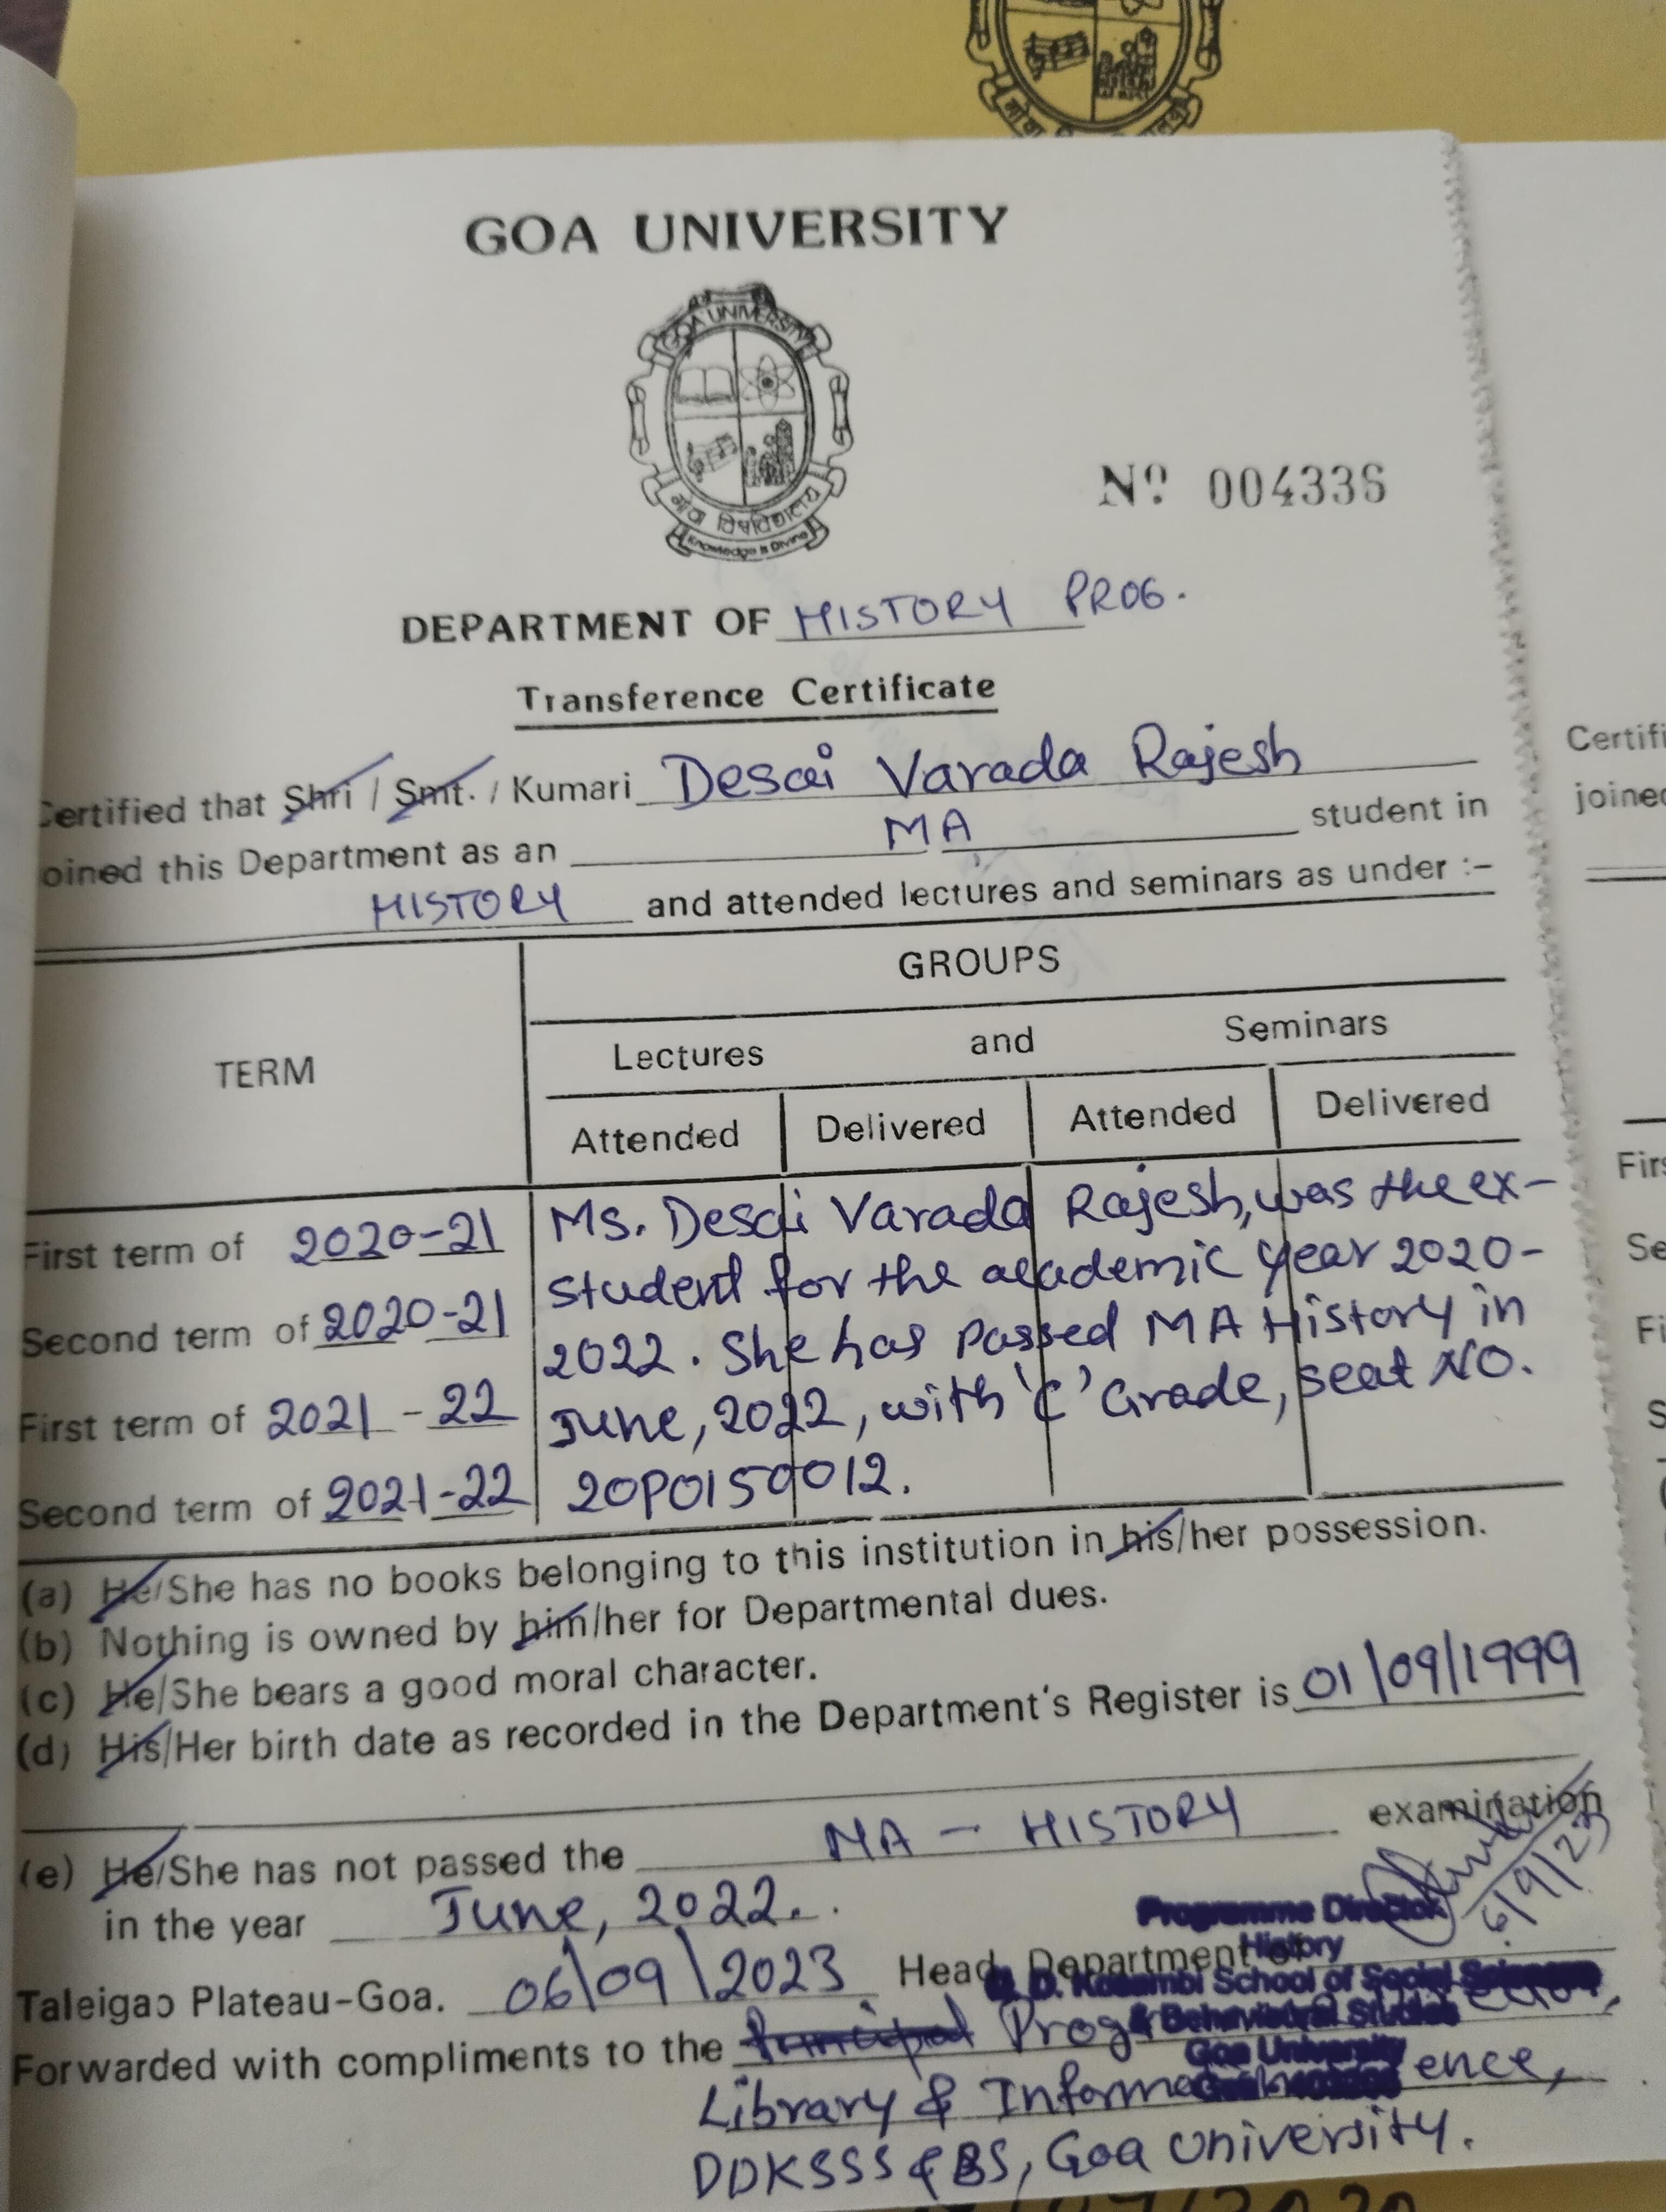 GOA UNIVERSITY
GOA UNIVERSITY
गोंय विश्वविद्यालय
Knowledge is Divine
Nº 004336
DEPARTMENT OF HISTORY PROG.
Transference Certificate
Certified that Shri / Smt. / Kumari Desai Varada Rajesh
joined this Department as an MA student in
HISTORY and attended lectures and seminars as under :-
TERM
GROUPS
Lectures and Seminars
Attended Delivered Attended Delivered
First term of 2020-21
Second term of 2020-21
First term of 2021-22
Second term of 2021-22
Ms. Desai Varada Rajesh, was the ex-
student for the academic year 2020-
2022. She has passed MA History in
June, 2022, with 'C' Grade, seat NO.
20P0150012.
(a) He/She has no books belonging to this institution in his/her possession.
(b) Nothing is owned by him/her for Departmental dues.
(c) He/She bears a good moral character.
(d) His/Her birth date as recorded in the Department's Register is 01/09/1999
(e) He/She has not passed the MA - HISTORY examination
in the year June, 2022.
6/9/23
Programme Director
History
D. D. Kosambi School of Social Sciences
& Behavioural Studies
Goa University
Taleigao Plateau-Goa. 06/09/2023 Head, Department of
Forwarded with compliments to the Principal
Library &
DDKSSS & BS, Goa University.
Certifi
joined
Firs
Se
Fi
S